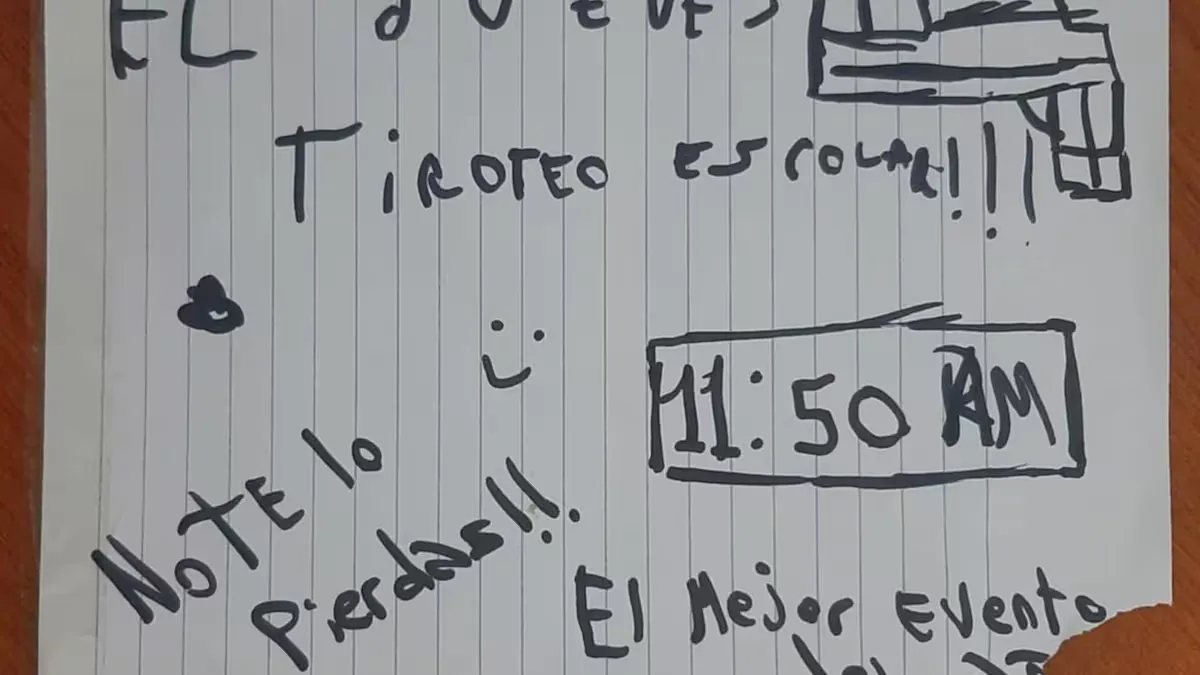 EL JUEVES
TiROTEO ESCOLAR!!!
11:50 AM
NO TE lo
pierdas!!!
El Mejor Evento